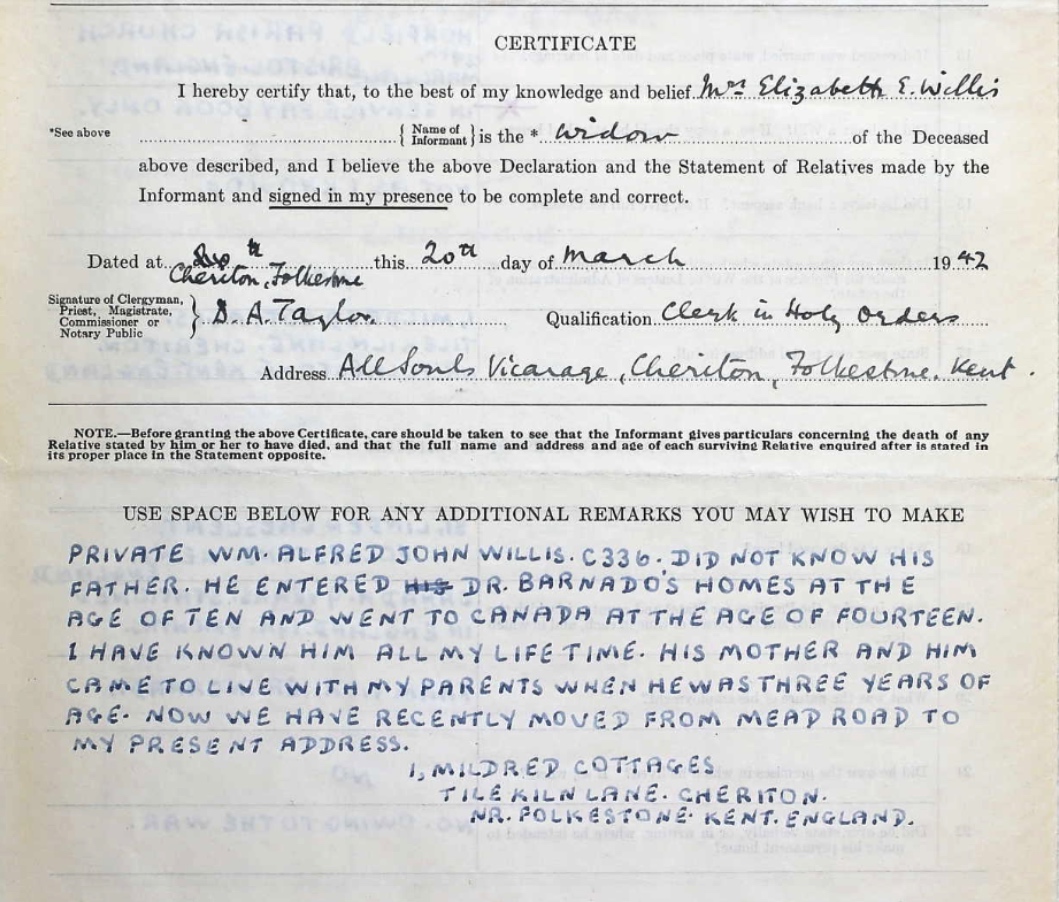 CERTIFICATE
I hereby certify that, to the best of my knowledge and belief Mrs Elizabeth E. Willis
*See above { Name of Informant } is the * widow of the Deceased
above described, and I believe the above Declaration and the Statement of Relatives made by the
Informant and signed in my presence to be complete and correct.
Dated at Cheriton, Folkestone this 20th day of March 1942
Signature of Clergyman, Priest, Magistrate, Commissioner or Notary Public } D. A. Taylor. Qualification Clerk in Holy Orders
Address All Souls Vicarage, Cheriton, Folkestone. Kent.
NOTE.—Before granting the above Certificate, care should be taken to see that the Informant gives particulars concerning the death of any
Relative stated by him or her to have died, and that the full name and address and age of each surviving Relative enquired after is stated in
its proper place in the Statement opposite.
USE SPACE BELOW FOR ANY ADDITIONAL REMARKS YOU MAY WISH TO MAKE
PRIVATE WM. ALFRED JOHN WILLIS. C336. DID NOT KNOW HIS
FATHER. HE ENTERED HIS DR. BARNADO'S HOMES AT THE
AGE OF TEN AND WENT TO CANADA AT THE AGE OF FOURTEEN.
I HAVE KNOWN HIM ALL MY LIFE TIME. HIS MOTHER AND HIM
CAME TO LIVE WITH MY PARENTS WHEN HE WAS THREE YEARS OF
AGE. NOW WE HAVE RECENTLY MOVED FROM MEAD ROAD TO
MY PRESENT ADDRESS.
1, MILDRED COTTAGES
TILE KILN LANE. CHERITON.
NR. FOLKESTONE. KENT. ENGLAND.